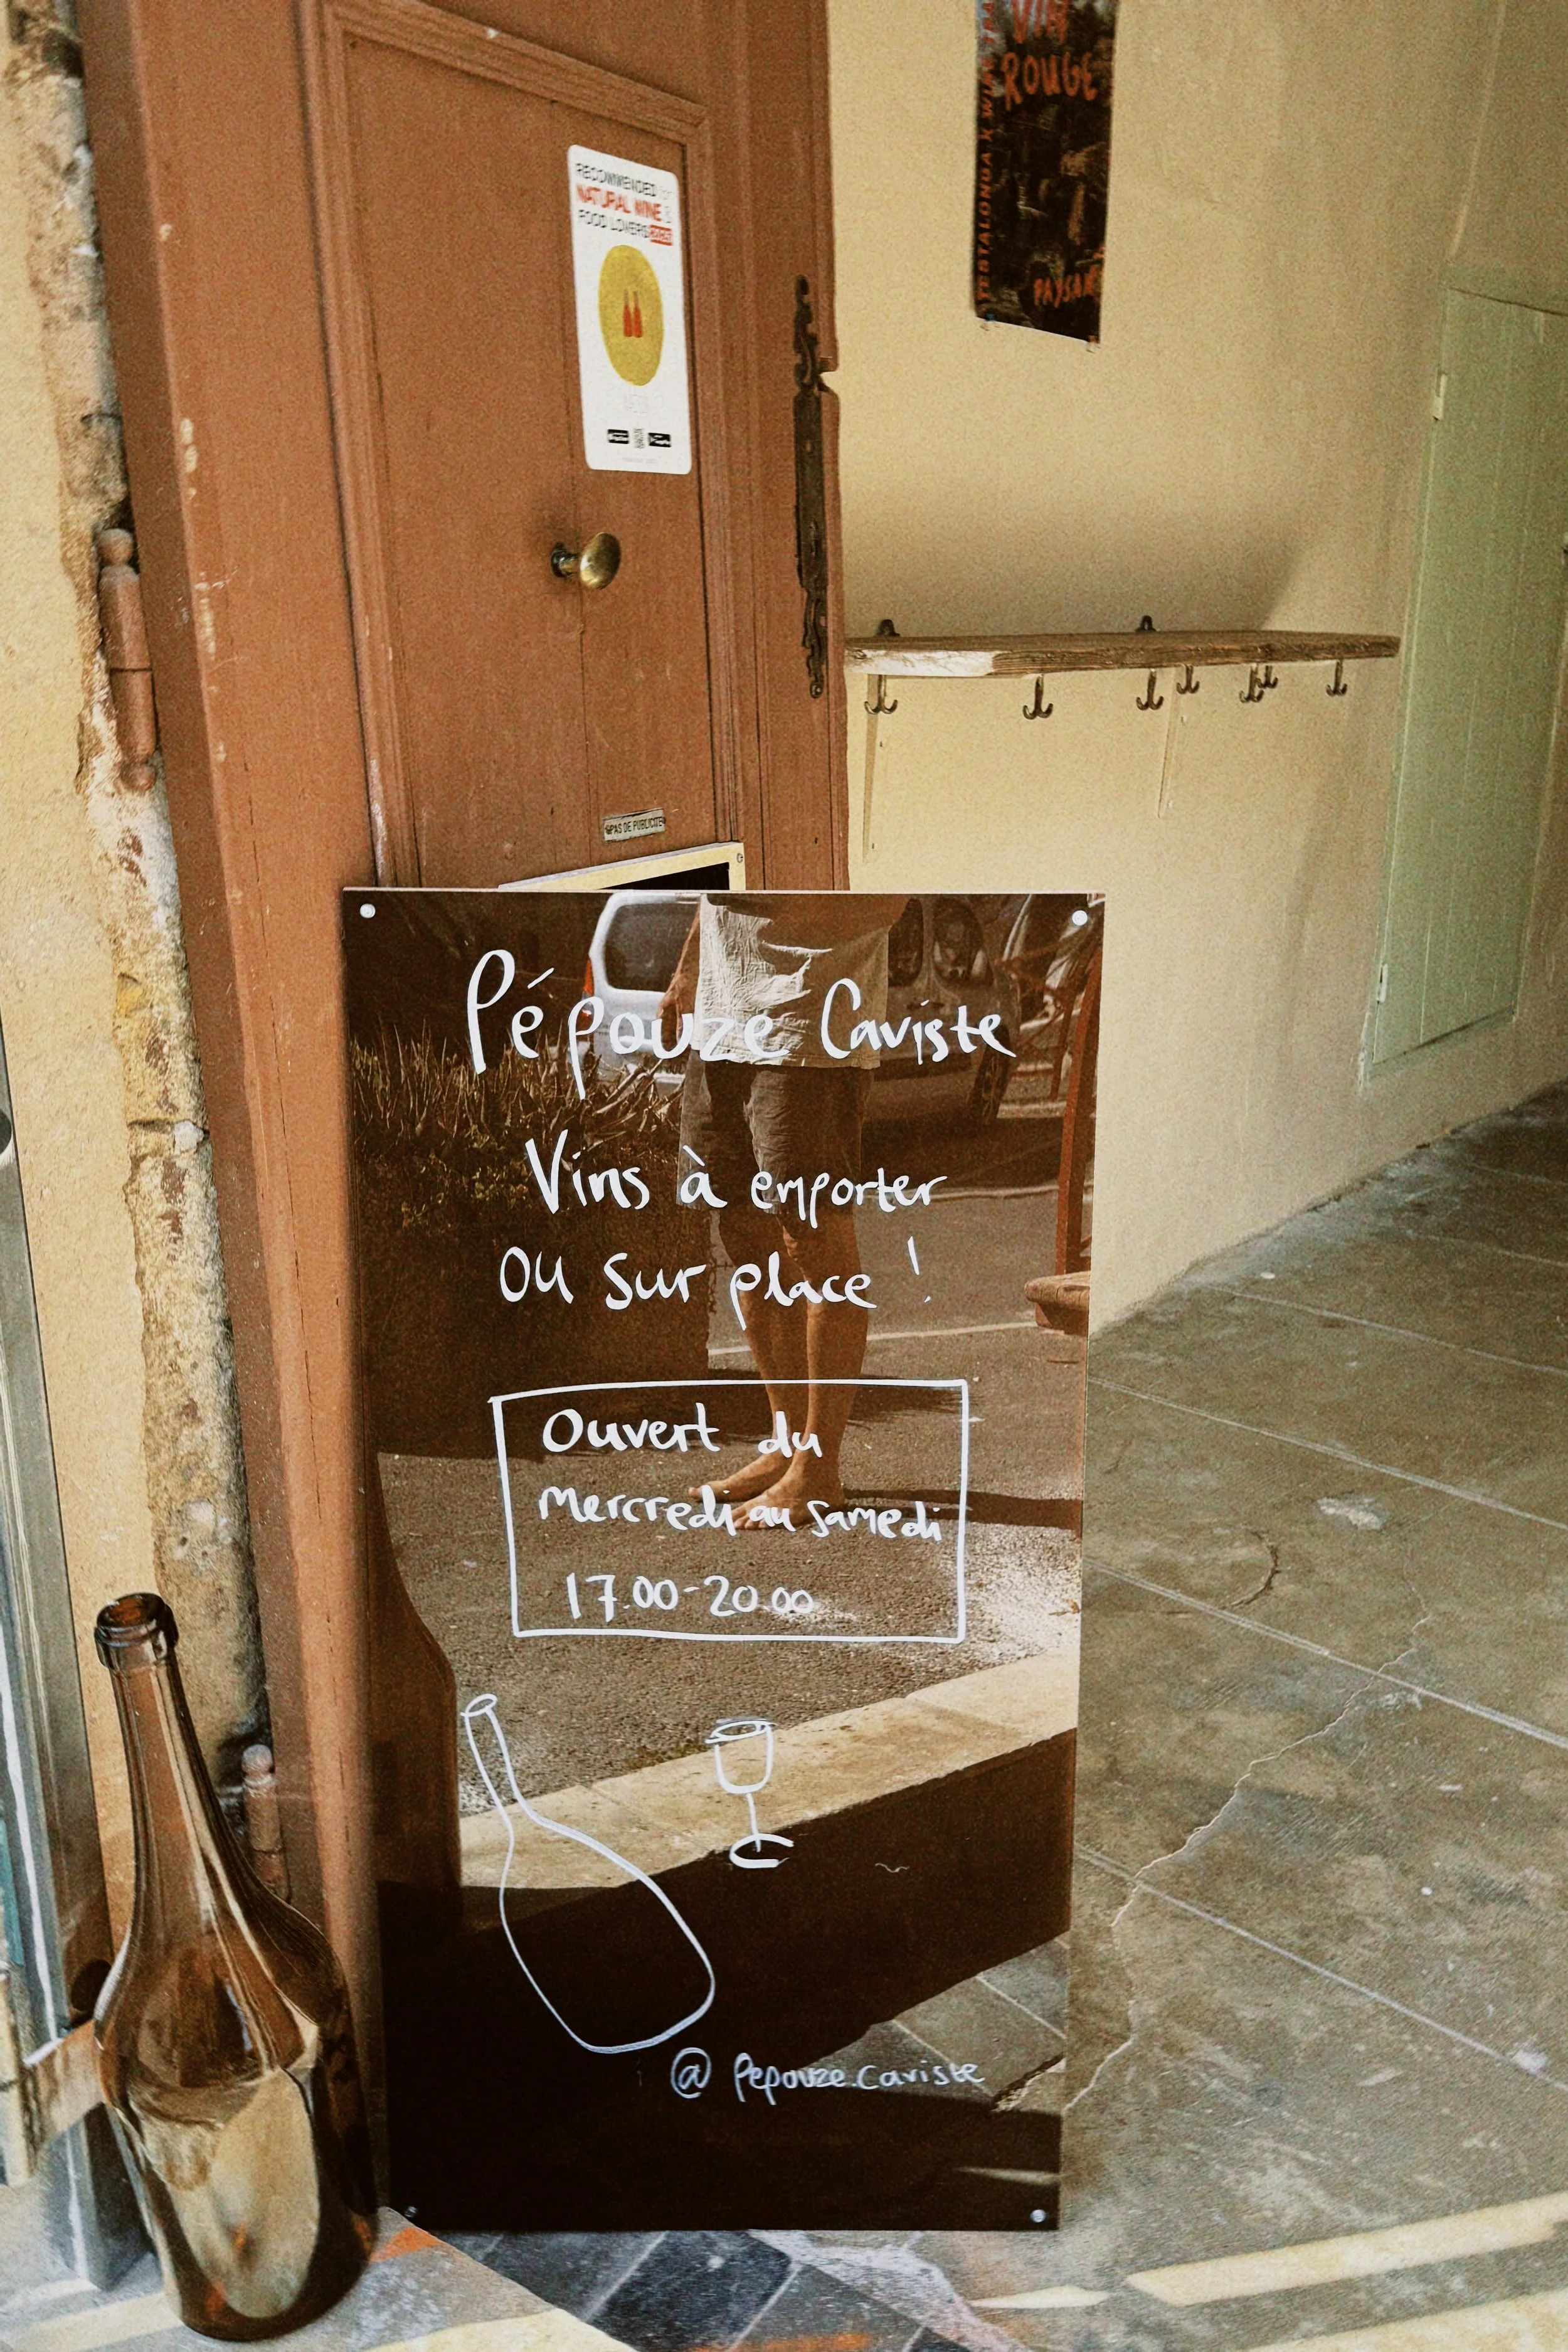 VIN
ROUGE
TESTALONGA X WINE TRA
PAYSAN
RECOMMENDED
NATURAL WINE &
FOOD LOVERS
PAS DE PUBLICITE
Pépouze Caviste
Vins à emporter
ou sur place !
Ouvert du
mercredi au samedi
17.00-20.00
@ pepouze.caviste